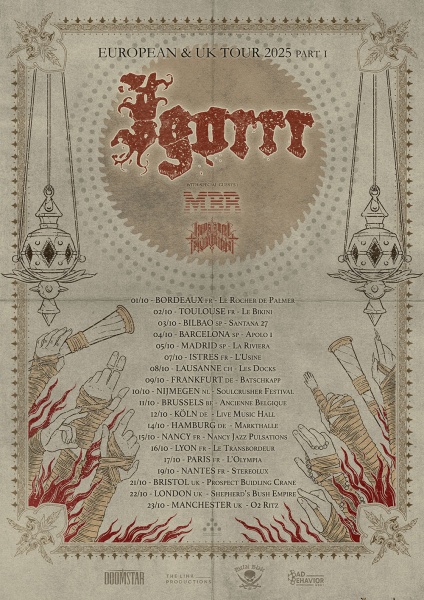 EUROPEAN & UK TOUR 2025 PART 1
Igorrr
WITH SPECIAL GUESTS
MBR
IMPERIAL TRIUMPHANT
01/10 - BORDEAUX FR - LE ROCHER DE PALMER
02/10 - TOULOUSE FR - LE BIKINI
03/10 - BILBAO SP - SANTANA 27
04/10 - BARCELONA SP - APOLO 1
05/10 - MADRID SP - LA RIVIERA
07/10 - ISTRES FR - L'USINE
08/10 - LAUSANNE CH - LES DOCKS
09/10 - FRANKFURT DE - BATSCHKAPP
10/10 - NIJMEGEN NL - SOULCRUSHER FESTIVAL
11/10 - BRUSSELS BE - ANCIENNE BELGIQUE
12/10 - KÖLN DE - LIVE MUSIC HALL
14/10 - HAMBURG DE - MARKTHALLE
15/10 - NANCY FR - NANCY JAZZ PULSATIONS
16/10 - LYON FR - LE TRANSBORDEUR
17/10 - PARIS FR - L'OLYMPIA
19/10 - NANTES FR - STEREOLUX
21/10 - BRISTOL UK - PROSPECT BUIDLING CRANE
22/10 - LONDON UK - SHEPHERD'S BUSH EMPIRE
23/10 - MANCHESTER UK - O2 RITZ
DOOMSTAR
THE LINK PRODUCTIONS
BAD BEHAVIOR